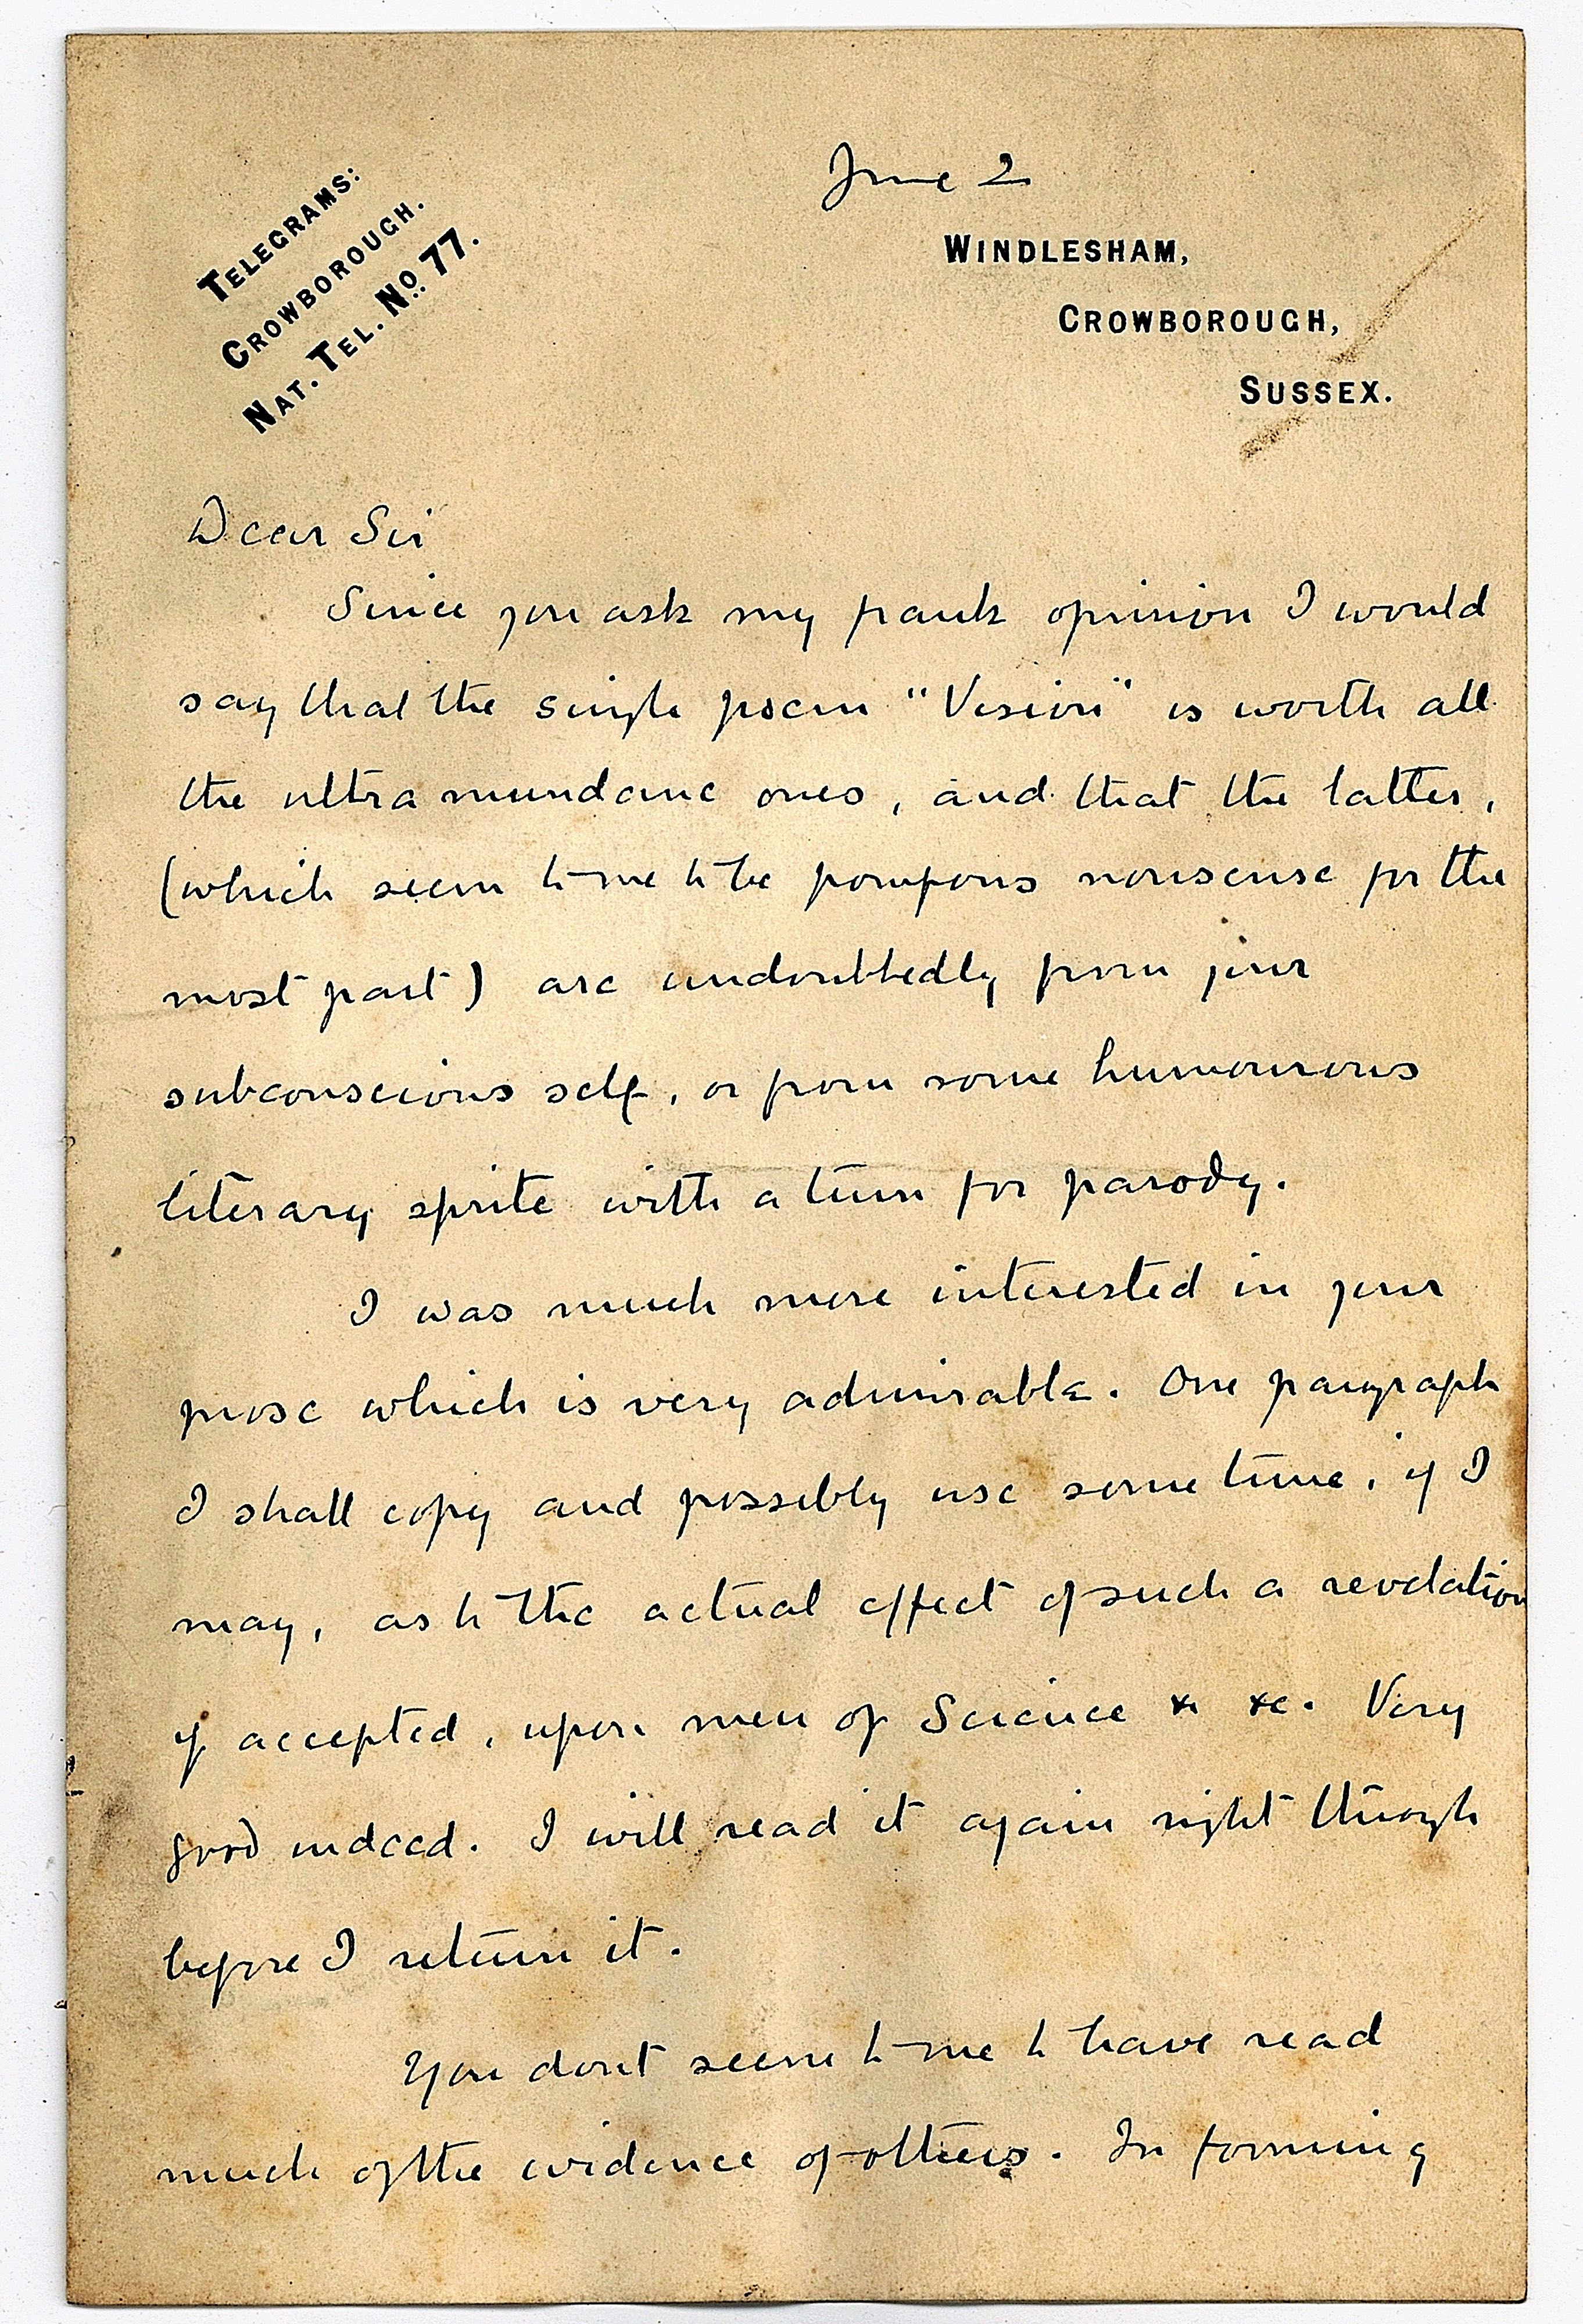 June 2
TELEGRAMS:
CROWBOROUGH.
NAT. TEL. No. 77.
WINDLESHAM,
CROWBOROUGH,
SUSSEX.
Dear Sir
Since you ask my frank opinion I would
say that the single poem "Vision" is worth all
the ultra mundane ones, and that the latter,
(which seem to me to be pompous nonsense for the
most part) are undoubtedly from your
subconscious self, or from some humourous
literary sprite with a turn for parody.
I was much more interested in your
prose which is very admirable. One paragraph
I shall copy and possibly use some time, if I
may, as to the actual effect of such a revelation
if accepted, upon men of Science &c &c. Very
good indeed. I will read it again right through
before I return it.
You dont seem to me to have read
much of the evidence of others. In forming